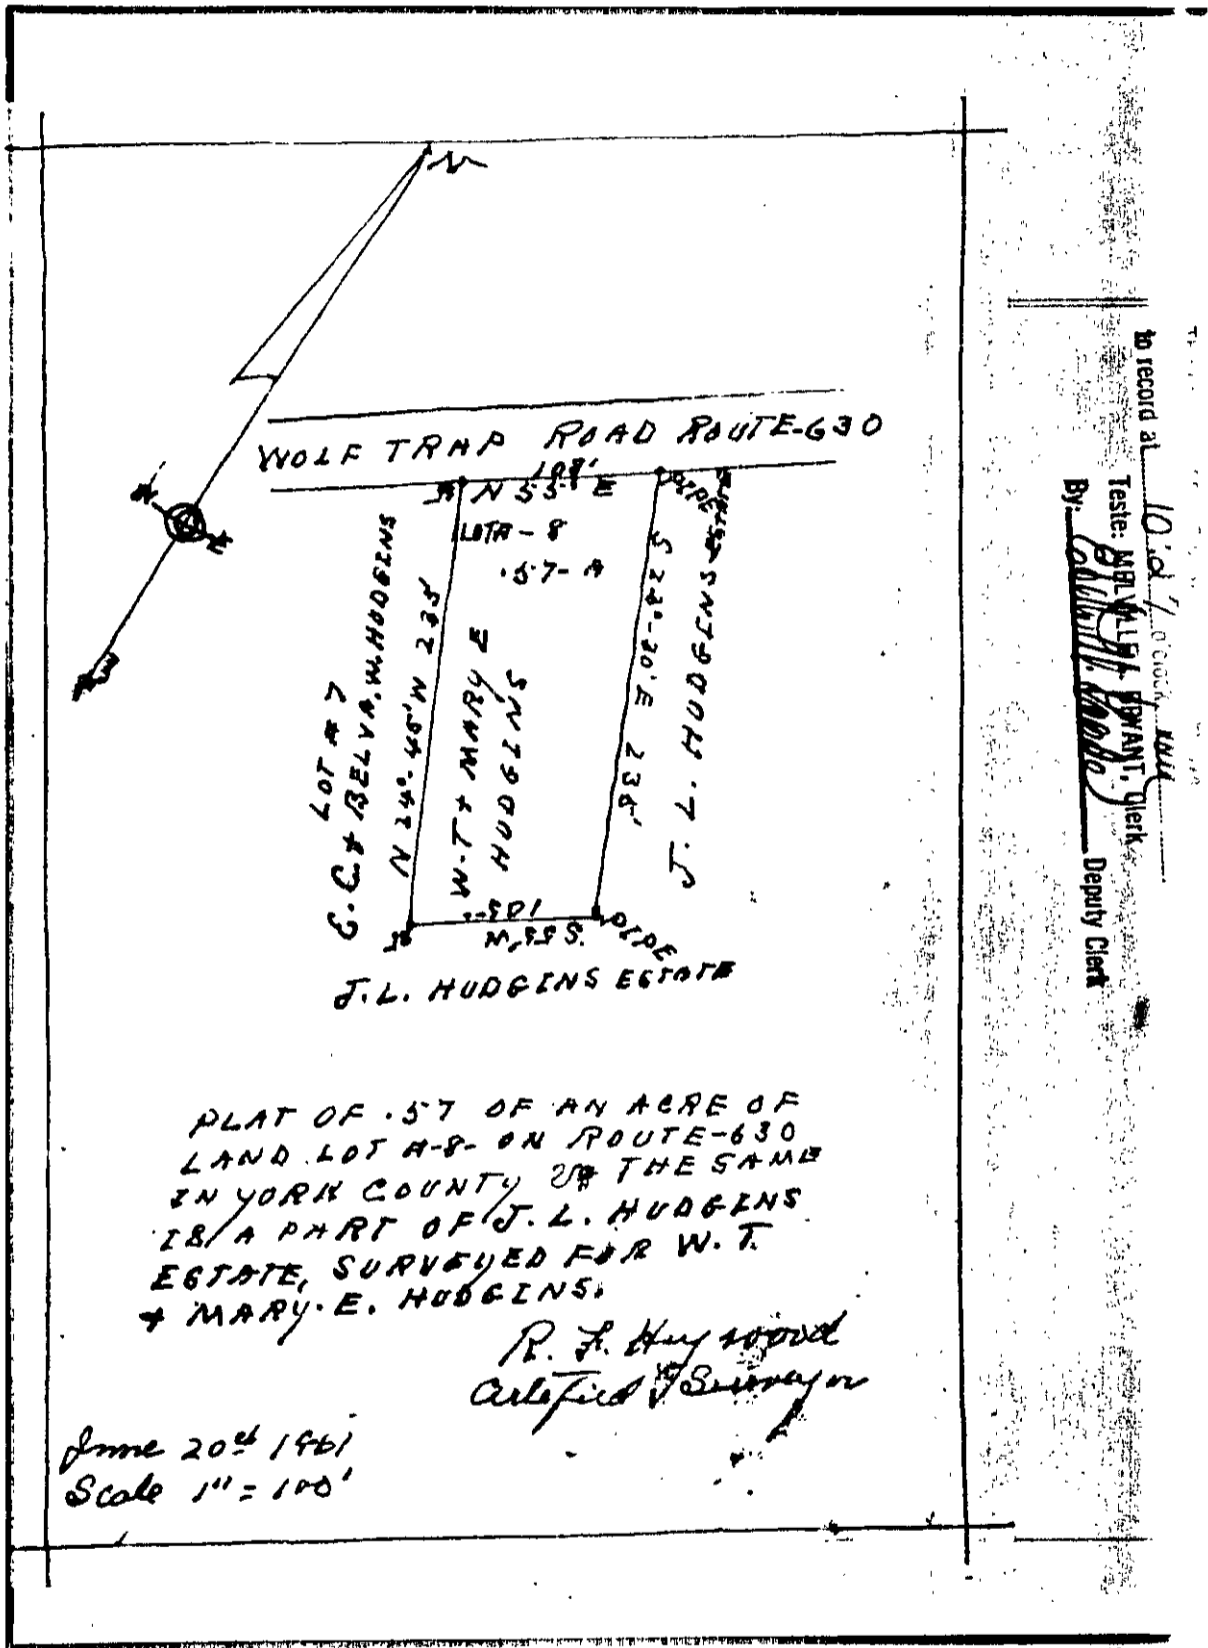 N
WOLF TRAP ROAD ROUTE-630
108'
N 55° E
PIPE
LOT A - 8
.57- A
LOT # 7
E. C. & BELVA. W. HUDGINS
N 24°-45' W 235'
W. T + MARY E
HUDGINS
S 24°-30' E 238'
J. L. HUDGINS ESTATE
105-'
S. 55° W
PIPE
J. L. HUDGINS ESTATE
PLAT OF .57 OF AN ACRE OF
LAND. LOT A-8- ON ROUTE-630
IN YORK COUNTY Va THE SAME
IS A PART OF J. L. HUDGINS
ESTATE, SURVEYED FOR W. T.
+ MARY. E. HUDGINS.
R. F. Hugwood
Certified Surveyor
June 20th 1961
Scale 1" = 100'
to record at 10:
o'clock
Teste: BRYANT, Clerk
By: Deputy Clerk